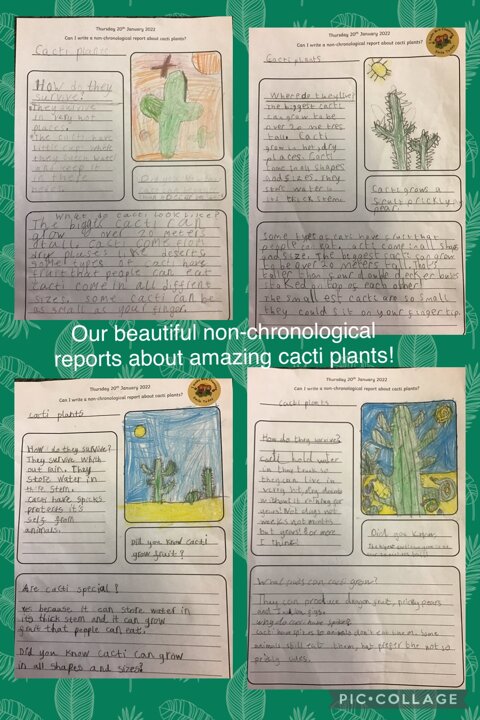 Thursday 20th January 2022
Can I write a non-chronological report about cacti plants?
Cacti plants
How do they
survive?
They survive
in very hot
places.
where
and keep it
in there
What do cacti look like?
The bigg cacti can
grow over 20 meters
tall. Cacti come from
dry places like deserts.
some types of cacti have
fruit that people can eat
cacti come in all
sizes. some cacti can be
as small as your finger.
Thursday 20th January 2022
Can I write a non-chronological report about cacti plants?
Cacti plants
Where do they live?
The biggest cacti
can grow to be
over 20 metres
tall. Cacti
grow in hot, dry
places. Cacti
come in all shapes
and sizes. They
store water in
its thick stem.
Cacti grows a
fruit prickly
pear.
Some types of cacti have fruits that
people can eat. acti come in all shape
and size. The biggest cacti can grow
to be over 20 meters tall. That's
taller than four double decker buses
stacked on top of each other!
the smallest cacti are so small
they could sit on your finger tip.
Our beautiful non-chronological
reports about amazing cacti plants!
Thursday 20th January 2022
Can I write a non-chronological report about cacti plants?
cacti plants
How do they survive?
They survive which
out rain. They
store water in
stem.
cacti have spicks
protects it's
self from
animals.
Did you know cacti
grow fruit?
Are cacti special?
yes because it can store water in
its thick stem and it can grow
fruit that people can eat.
Did you know cacti can grow
in all shapes and sizes?
Thursday 20th January 2022
Can I write a non-chronological report about cacti plants?
cacti plants
How do they survive?
cacti hold water
in their trunk so
they can live in
very hot, dry deserts
without it raining for
years! Not days not
weeks not months
but years! for more
I think!
Did you know
What fruits can cacti grow?
They can produce dragon fruit, prickly pears
and figs.
why do cacti have spikes?
cacti have spikes so animals don't eat them. Some
animals still eat them, but prefer the not so
prickly ones.
PIC•COLLAGE